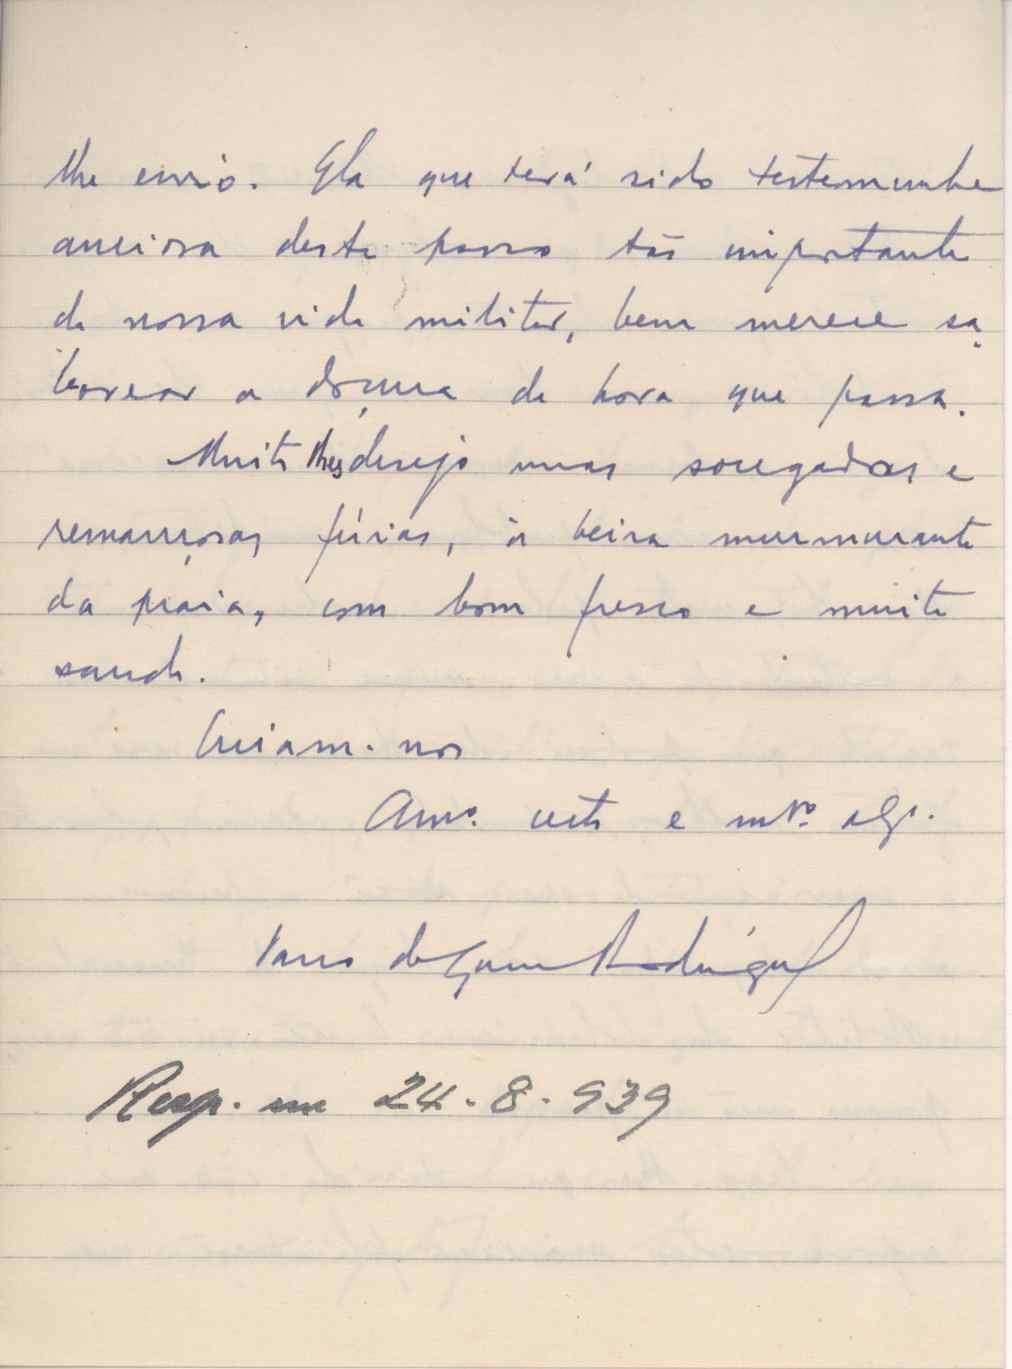 lhe envio. Ela que terá sido testemunha
anciosa deste passo tão importante
da nossa vida militar, bem merece sa-
borear a doçura da hora que passa.
Muito lhes desejo umas socegadas e
remançosas férias, à beira murmurante
da práia, com bom fresco e muita
saude.
Creiam-nos
Amº. certo e mtº. obgº.
Vasco da Gama Rodrigues
Resp. em 24-8-939